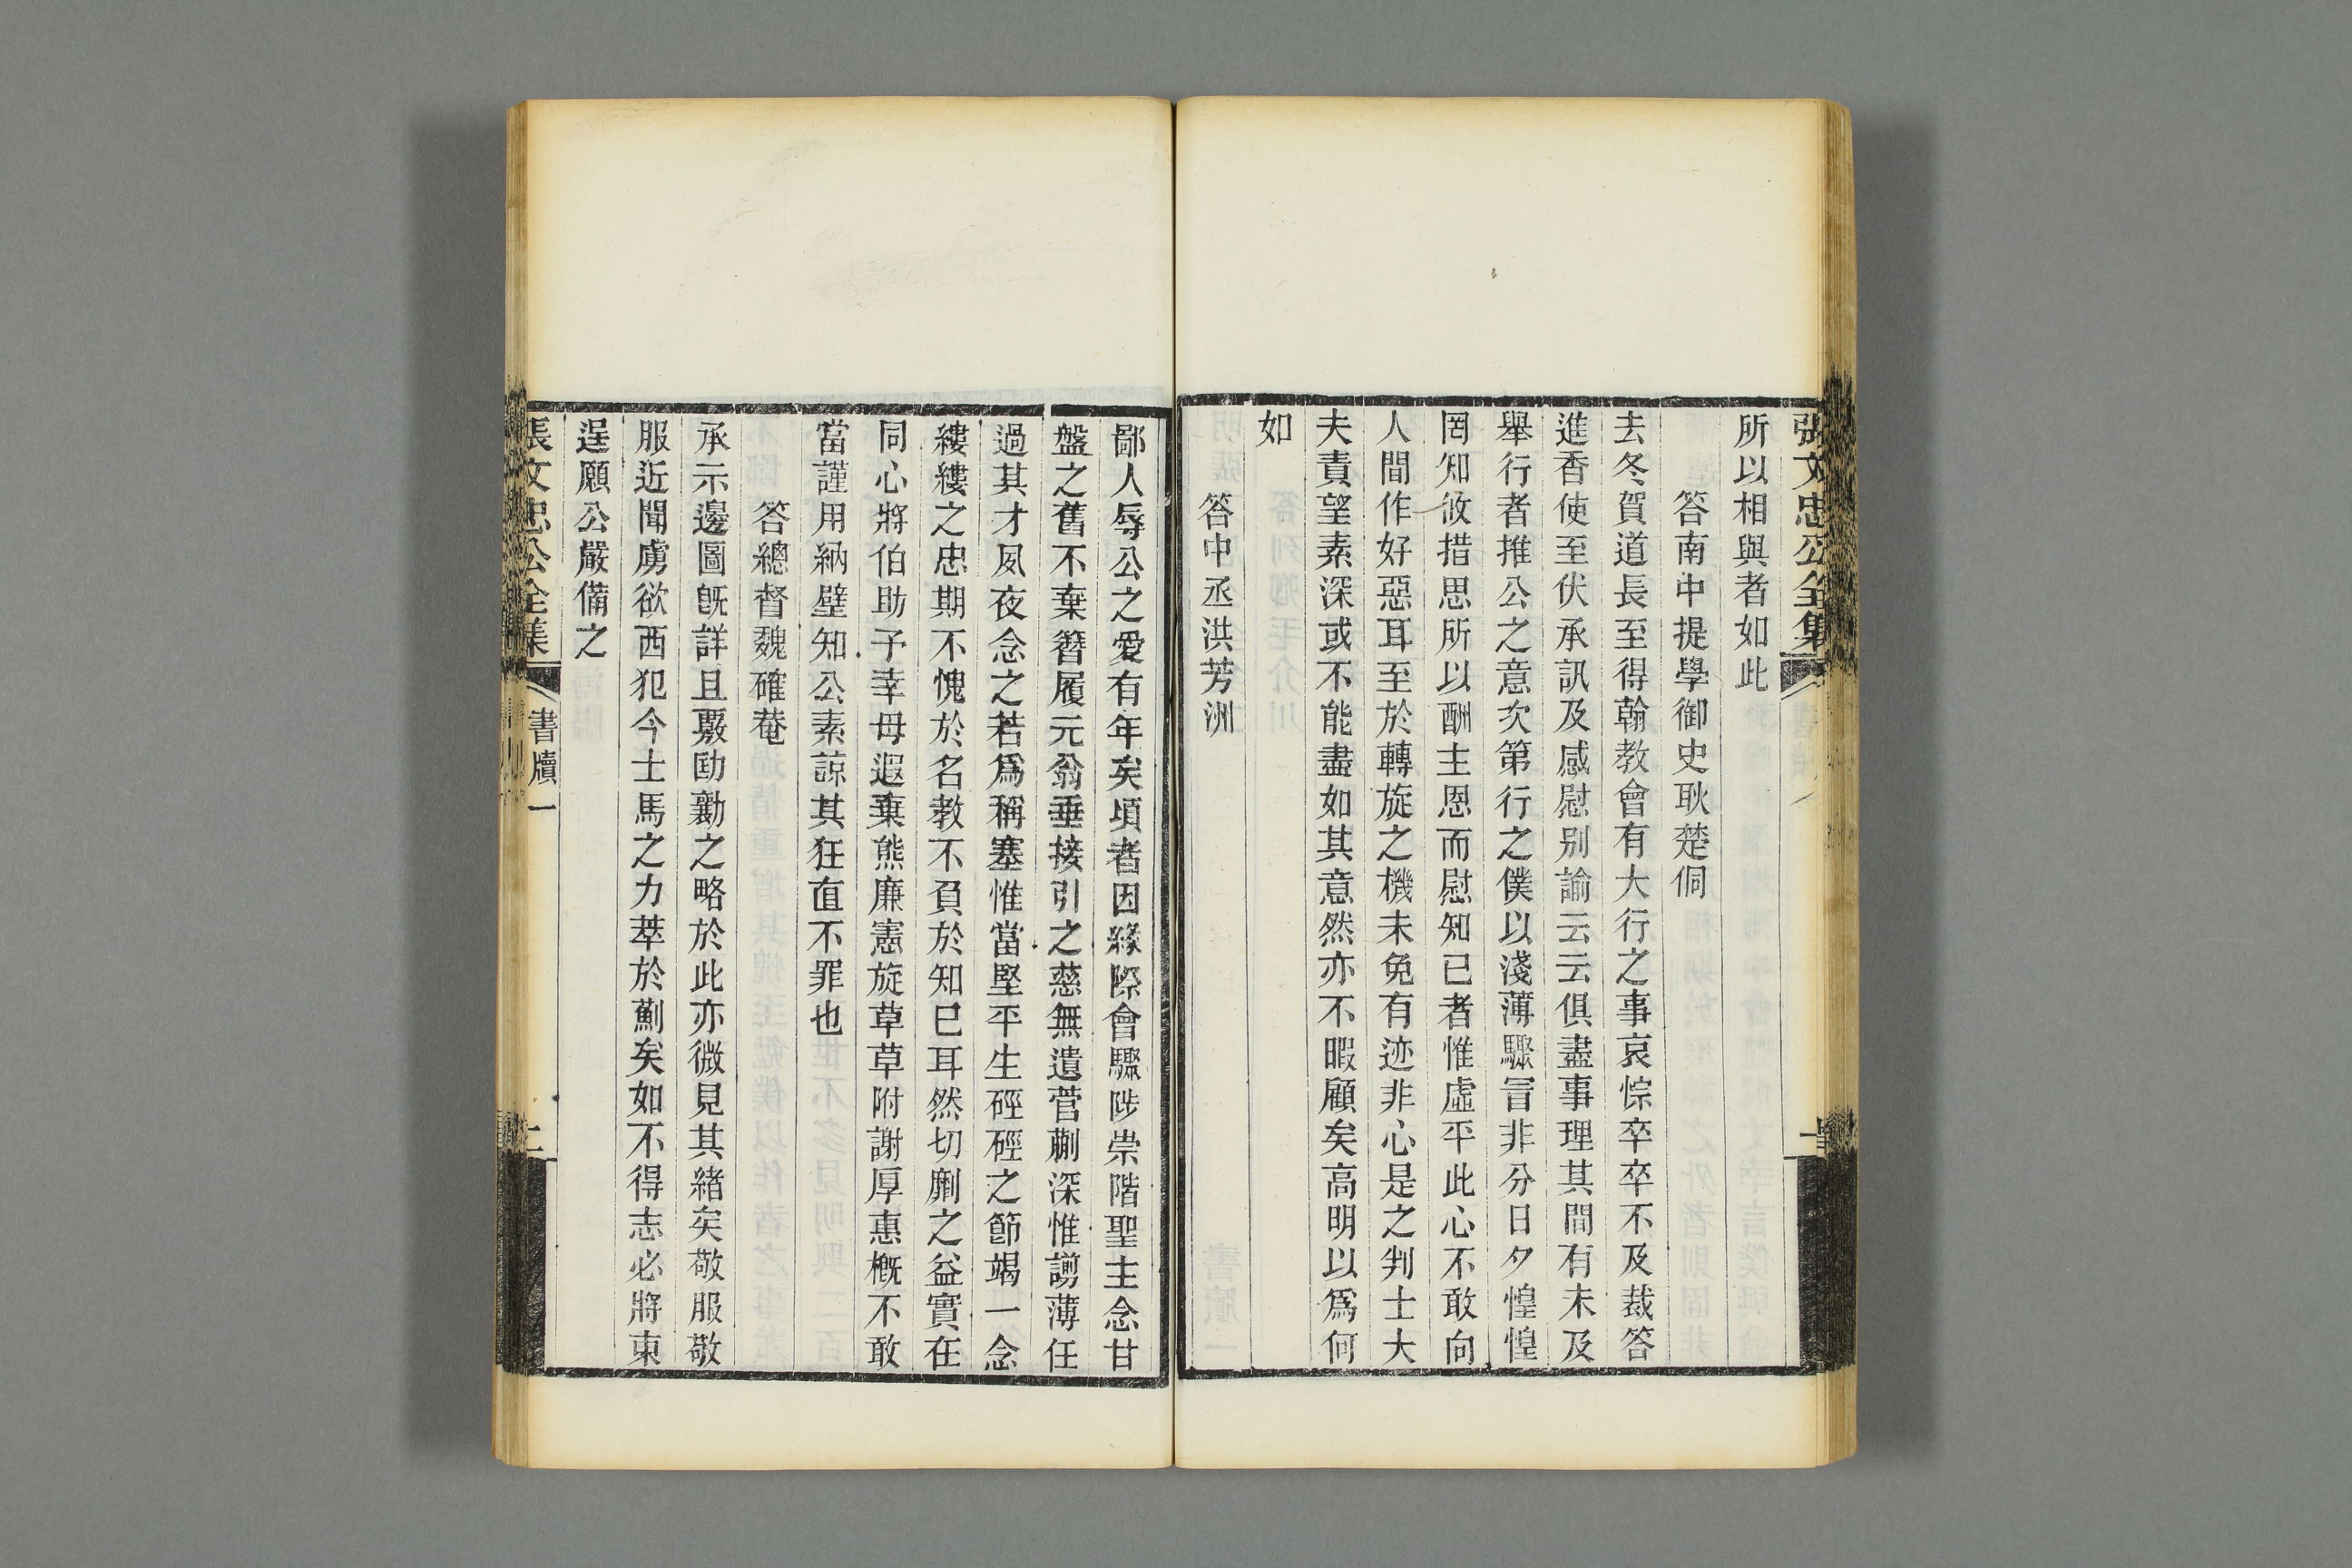 張文忠公全集
所以相與者如此
答南中提學御史耿楚侗
去冬賀道長至得翰教會有大行之事哀悰卒卒不及裁答
進香使至伏承訊及感慰别諭云云俱盡事理其間有未及
舉行者推公之意次第行之僕以淺薄驟冐非分日夕惶惶
罔知攸措思所以酬主恩而慰知已者惟虛平此心不敢向
人間作好惡耳至於轉旋之機未免有迹非心是之判士大
夫責望素深或不能盡如其意然亦不暇顧矣高明以爲何
如
答中丞洪芳洲
鄙人辱公之愛有年矣頃者因緣際會驟陟崇階聖主念甘
盤之舊不棄簪履元翁垂接引之慈無遺菅蒯深惟謭薄任
過其才夙夜念之若爲稱塞惟當堅平生硜硜之節竭一念
縷縷之忠期不愧於名教不負於知巳耳然切劘之益實在
同心將伯助予幸毋遐棄熊廉憲旋草草附謝厚惠概不敢
當謹用納璧知公素諒其狂直不罪也
答總督魏確菴
承示邊圖旣詳且覈勛勷之略於此亦微見其緒矣敬服敬
服近聞虜欲西犯今士馬之力萃於薊矣如不得志必將東
逞願公嚴備之
張文忠公全集
書牘一
二